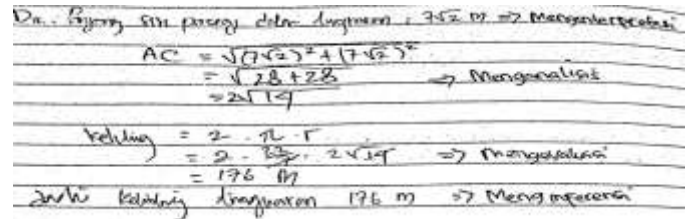 Dn. Panjang sisi persegi dalam lingkaran : 7√2 m => Menginterpretasi
AC = √(7√2)² + (7√2)²
= √28 + 28 => Menganalisis
= 2√14
keliling = 2 . π . r
= 2 . 22/7 . 2√14 => Mengevaluasi
= 176 m
Jadi keliling lingkaran 176 m => Menginferensi